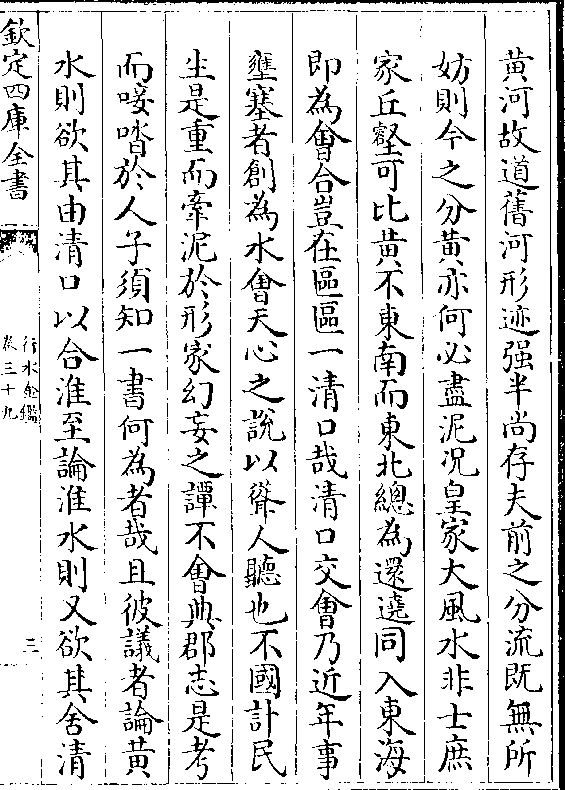 黄河故道舊河形迹强半尚存夫前之分流既無所
妨則今之分黄亦何必盡泥况皇家大風水非士庶
家丘壑可比黄不東南而東北總為還遶同入東海
即為會合豈在區區一清口哉清口交會乃近年事
壅塞者創為水會天心之說以聳人聽也不國計民
生是重而牽泥於形家幻妄之譚不會典郡志是考
而唼喈於人子須知一書何為者哉且彼議者論黄
水則欲其由清口以合淮至論淮水則又欲其舍清
欽定四庫全書
行水金鑑
卷三十九
三